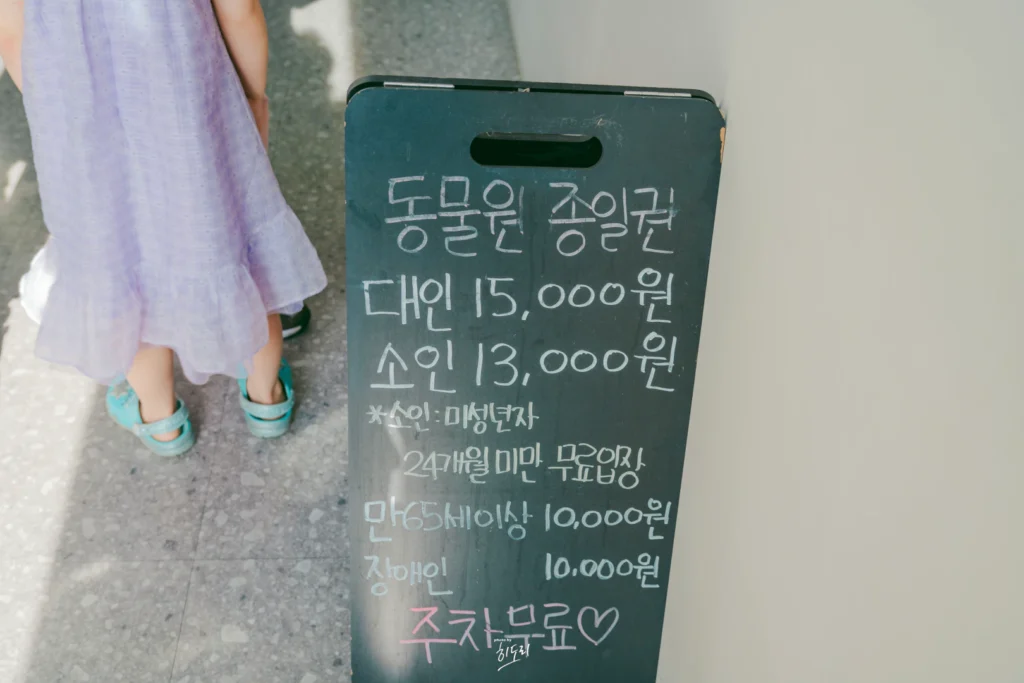 동물원 종일권
대인 15,000원
소인 13,000원
*소인:미성년자
24개월 미만 무료입장
만65세이상 10,000원
장애인 10,000원
주차무료♡
히도리